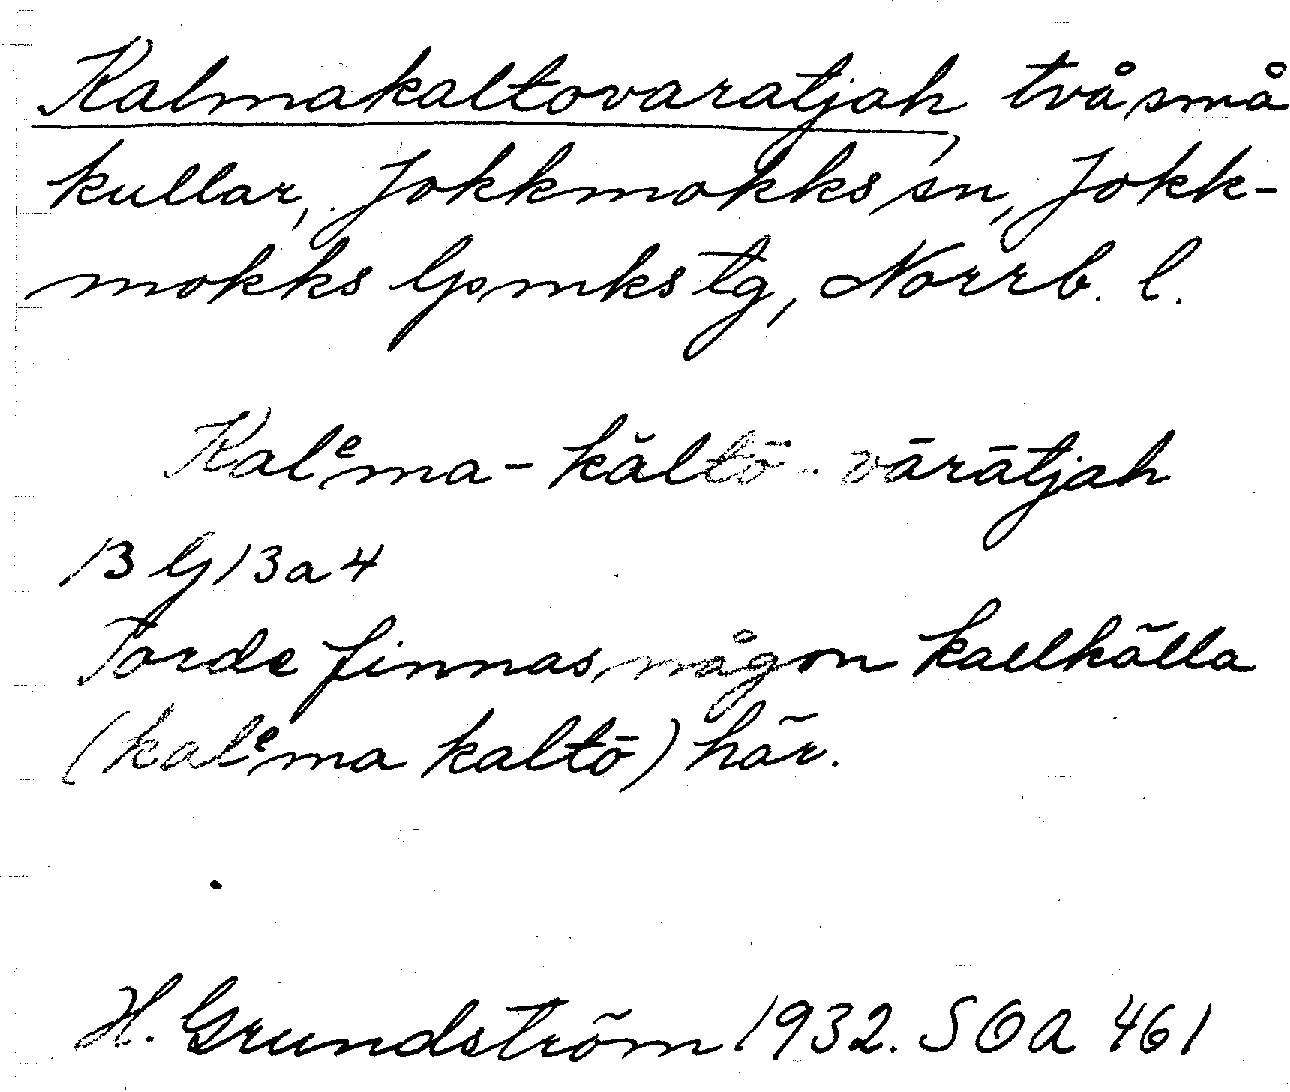 Kalmakaltovaratjah, två små
kullar, Jokkmokks sn, Jokk-
mokks lpmks tg, Norrb. l.
Kalᵉma-kăltō-vārātjah
13 G 13 a 4
Torde finnas någon kallkälla
(kalᵉma kaltō) här.
H. Grundström 1932. SOA 461